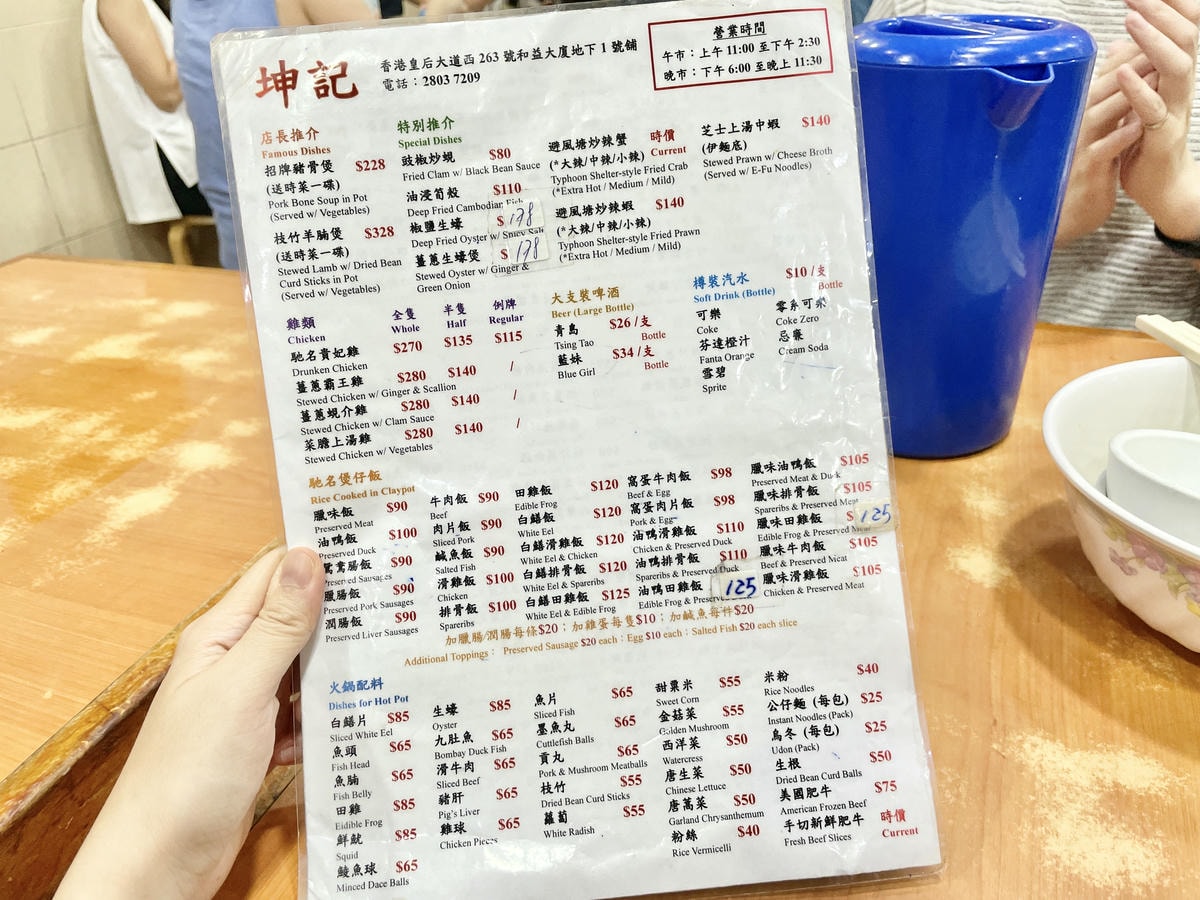 坤記
香港皇后大道西 263 號和益大廈地下 1 號舖
電話：2803 7209
營業時間
午市：上午 11:00 至下午 2:30
晚市：下午 6:00 至晚上 11:30
店長推介
Famous Dishes
招牌豬骨煲 $228
(送時菜一碟)
Pork Bone Soup in Pot
(Served w/ Vegetables)
枝竹羊腩煲 $328
(送時菜一碟)
Stewed Lamb w/ Dried Bean
Curd Sticks in Pot
(Served w/ Vegetables)
特別推介
Special Dishes
豉椒炒蜆 $80
Fried Clam w/ Black Bean Sauce
油浸筍殼 $110
Deep Fried Cambodian Fish
椒鹽生蠔 $ 138
Deep Fried Oyster w/ Spicy Salt
薑蔥生蠔煲 $ 138
Stewed Oyster w/ Ginger &
Green Onion
避風塘炒辣蟹 時價
(*大辣/中辣/小辣) Current
Typhoon Shelter-style Fried Crab
(*Extra Hot / Medium / Mild)
避風塘炒辣蝦 $140
(*大辣/中辣/小辣)
Typhoon Shelter-style Fried Prawn
(*Extra Hot / Medium / Mild)
芝士上湯中蝦 $140
(伊麵底)
Stewed Prawn w/ Cheese Broth
(Served w/ E-Fu Noodles)
雞類 全隻 半隻 例牌
Chicken Whole Half Regular
馳名貴妃雞 $270 $135 $115
Drunken Chicken
薑蔥霸王雞 $280 $140 /
Stewed Chicken w/ Ginger & Scallion
薑蔥蜆介雞 $280 $140 /
Stewed Chicken w/ Clam Sauce
菜膽上湯雞 $280 $140 /
Stewed Chicken w/ Vegetables
大支裝啤酒
Beer (Large Bottle)
青島 $26 /支
Tsing Tao Bottle
藍妹 $34 /支
Blue Girl Bottle
樽裝汽水 $10 /支
Soft Drink (Bottle) Bottle
可樂
Coke
芬達橙汁
Fanta Orange
雪碧
Sprite
零系可樂
Coke Zero
忌廉
Cream Soda
馳名煲仔飯
Rice Cooked in Claypot
臘味飯 $90
Preserved Meat
油鴨飯 $100
Preserved Duck
鴛鴦腸飯 $90
Preserved Sausages
臘腸飯 $90
Preserved Pork Sausages
潤腸飯 $90
Preserved Liver Sausages
牛肉飯 $90
Beef
肉片飯 $90
Sliced Pork
鹹魚飯 $90
Salted Fish
滑雞飯 $100
Chicken
排骨飯 $100
Spareribs
田雞飯 $120
Edible Frog
白鱔飯 $120
White Eel
白鱔滑雞飯 $120
White Eel & Chicken
白鱔排骨飯 $120
White Eel & Spareribs
白鱔田雞飯 $125
White Eel & Edible Frog
窩蛋牛肉飯 $98
Beef & Egg
窩蛋肉片飯 $98
Pork & Egg
油鴨滑雞飯 $110
Chicken & Preserved Duck
油鴨排骨飯 $110
Spareribs & Preserved Duck
油鴨田雞飯 125
Edible Frog & Preserved
臘味油鴨飯 $105
Preserved Meat & Duck
臘味排骨飯 $105
Spareribs & Preserved Meat
臘味田雞飯 $ 125
Edible Frog & Preserved Meat
臘味牛肉飯 $105
Beef & Preserved Meat
臘味滑雞飯 $105
Chicken & Preserved Meat
加臘腸/潤腸每條$20；加雞蛋每隻$10；加鹹魚每件$20
Additional Toppings： Preserved Sausage $20 each；Egg $10 each；Salted Fish $20 each slice
火鍋配料
Dishes for Hot Pot
白鱔片 $85
Sliced White Eel
魚頭 $65
Fish Head
魚腩 $65
Fish Belly
田雞 $85
Eidible Frog
鮮魷 $85
Squid
鯪魚球 $65
Minced Dace Balls
生蠔 $85
Oyster
九肚魚 $65
Bombay Duck Fish
滑牛肉 $65
Sliced Beef
豬肝 $65
Pig's Liver
雞球 $65
Chicken Pieces
魚片 $65
Sliced Fish
墨魚丸 $65
Cuttlefish Balls
貢丸 $65
Pork & Mushroom Meatballs
枝竹 $55
Dried Bean Curd Sticks
蘿蔔 $55
White Radish
甜粟米 $55
Sweet Corn
金菇菜 $55
Golden Mushroom
西洋菜 $50
Watercress
唐生菜 $50
Chinese Lettuce
唐蒿菜 $50
Garland Chrysanthemum
粉絲 $40
Rice Vermicelli
米粉 $40
Rice Noodles
公仔麵 (每包) $25
Instant Noodles (Pack)
烏冬 (每包) $25
Udon (Pack)
生根 $50
Dried Bean Curd Balls
美國肥牛 $75
American Frozen Beef
手切新鮮肥牛 時價
Fresh Beef Slices Current